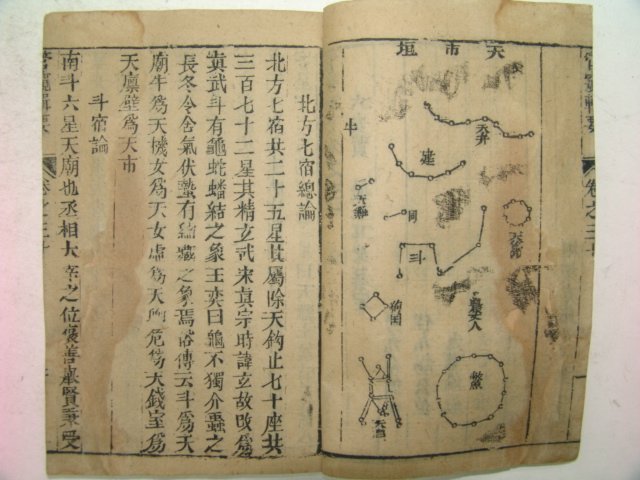 天市垣
天弁
建
斗
狗
天籥
天雞
狗国
農丈人
鱉
管窺輯要
卷之三十
北方七宿總論
北方七宿共二十五星其屬除天鈎止七十座共
三百七十二星其精玄武宋真宗時諱玄故改爲
真武斗有龜蛇蟠結之象王奕曰龜不獨介蟲之
長冬令含氣伏蟄有結藏之象焉俗傳云斗爲天
廟牛爲天機女爲天女虛爲天危爲天錢室爲
天廪壁爲天市
斗宿論
南斗六星天廟也丞相大宰之位襃善進賢稟受
管窺輯要
卷之三十